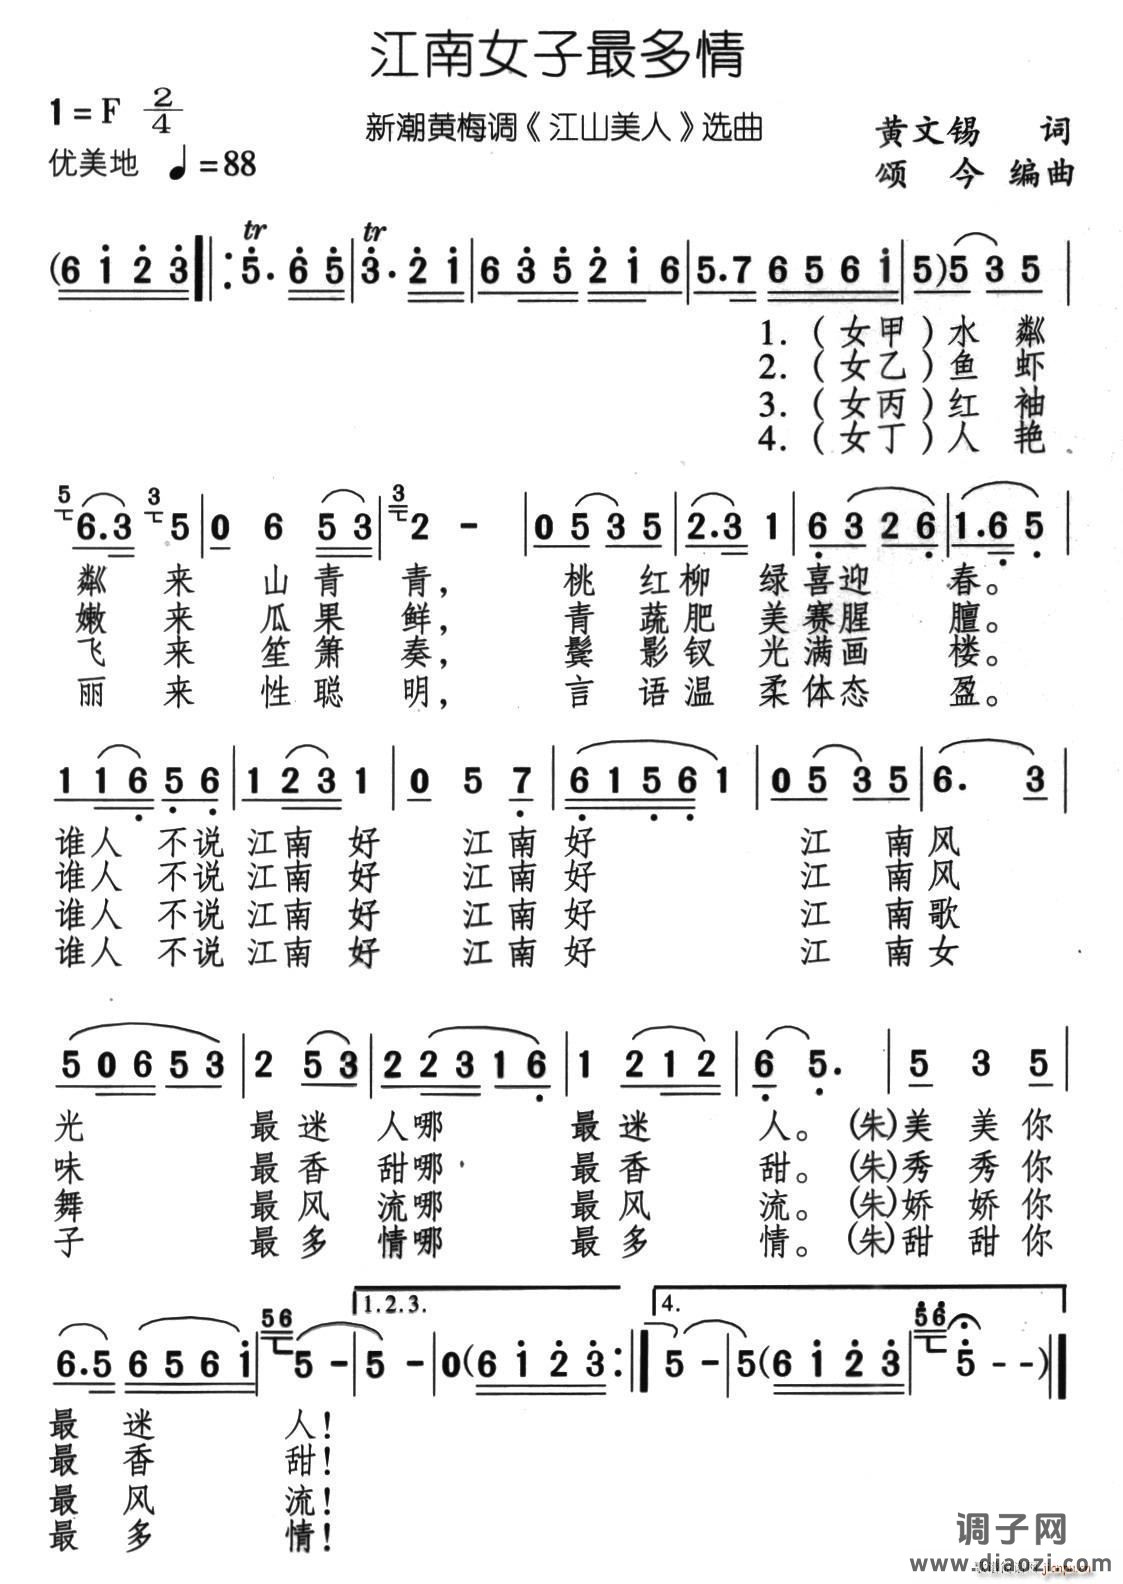 江南女子最多情
1=F 2/4
新潮黄梅调《江山美人》选曲
黄文锡 词
优美地 ♩=88
颂今 编曲
(6 1 2 3 ‖: 5. 6 5 | 3. 2 1 | 6 3 5 2 1 6 | 5.7 6 5 6 1 | 5)5 3 5 |
tr tr
1.(女甲)水粼
2.(女乙)鱼虾
3.(女丙)红袖
4.(女丁)人艳
5 6.3 3 5 | 0 6 5 3 | 3 2 - | 0 5 3 5 | 2.3 1 | 6 3 2 6 | 1.6 5 |
粼来山青青,桃红柳绿喜迎春。
嫩来瓜果鲜,青蔬肥美赛腥膻。
飞来笙箫奏,鬓影钗光满画楼。
丽来性聪明,言语温柔体态盈。
1 1 6 5 6 | 1 2 3 1 | 0 5 7 | 6 1 5 6 1 | 0 5 3 5 | 6. 3 |
谁人不说江南好 江南好 江南风
谁人不说江南好 江南好 江南风
谁人不说江南好 江南好 江南歌
谁人不说江南好 江南好 江南女
5 0 6 5 3 | 2 5 3 | 2 2 3 1 6 | 1 2 1 2 | 6 5. | 5 3 5 |
光 最迷人哪 最迷人。(朱)美美你
味 最香甜哪 最香甜。(朱)秀秀你
舞 最风流哪 最风流。(朱)娇娇你
子 最多情哪 最多情。(朱)甜甜你
1.2.3. 4.
6.5 6 5 6 1 | 56 5 - | 5 - | 0 (6 1 2 3 :‖ 5 - | 5 (6 1 2 3 | 56 5 - - ) ‖
最迷人!
最香甜!
最风流!
最多情!
调子网
www.diaozi.com